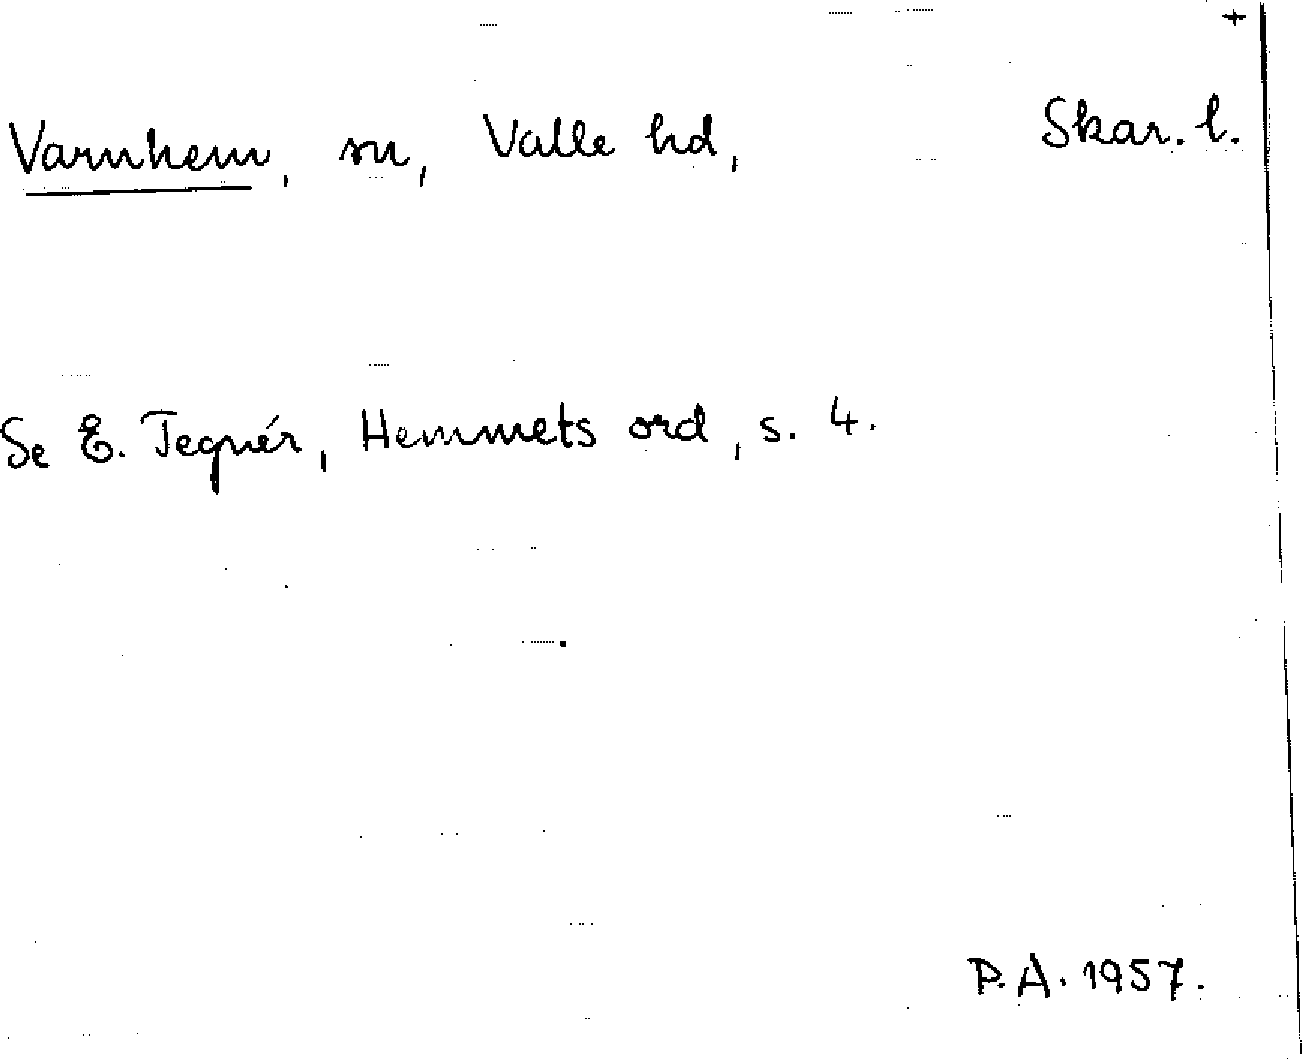 Varnhem, sn, Valle hd, Skar. l.
Se E. Tegnér, Hemmets ord, s. 4.
P.A. 1957.